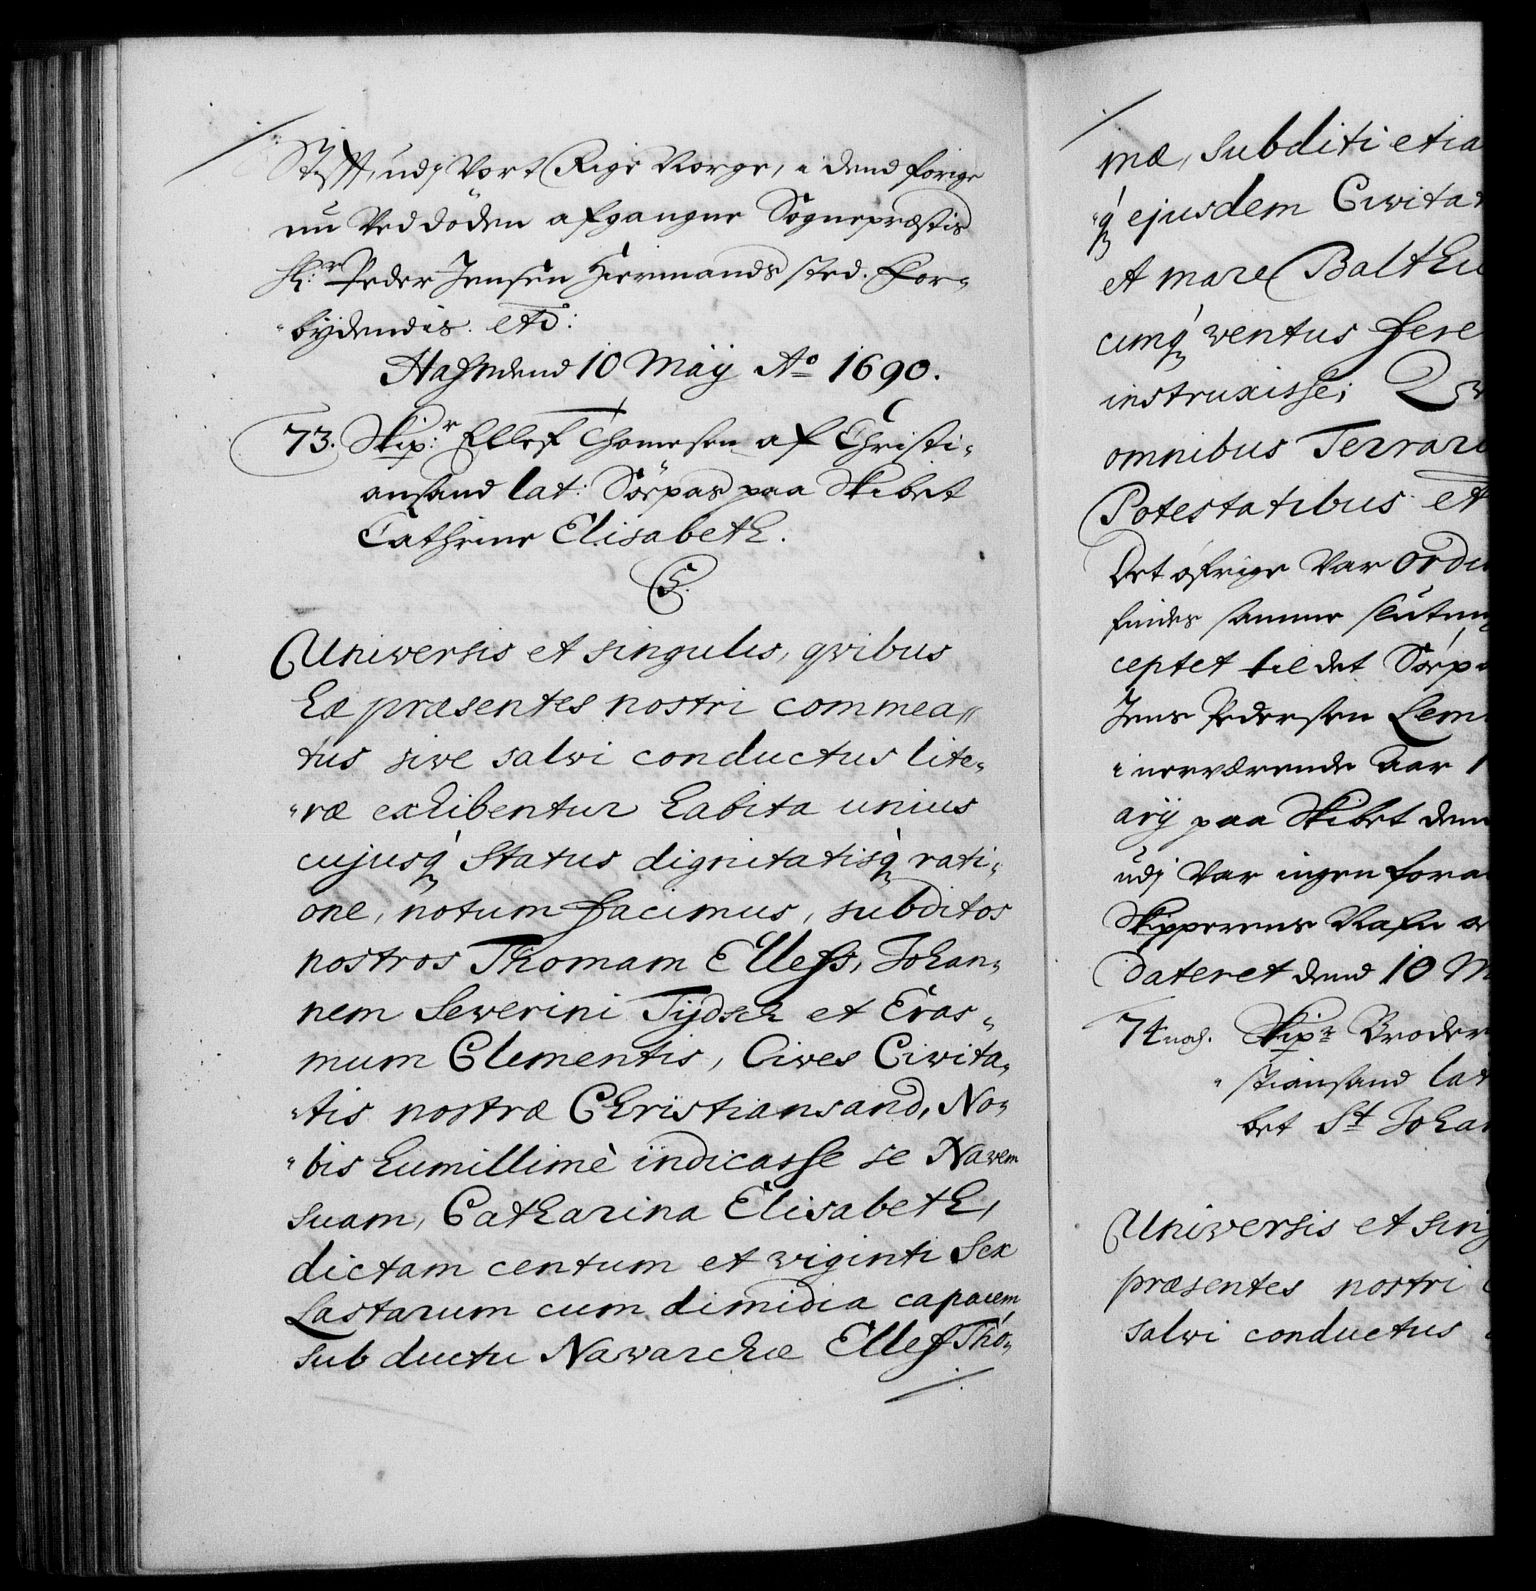 Stift, udj Vort Rige Norge, i dend forige
nu Ved döden afgangne Sognepræstis
Hr: Peder Jensen Hiermands sted. For-
bydendis. etc:
Hafn dend 10 Maÿ Ao 1690.
73. Skip:r Ellef Thomesen af Christi-
ansand lat: Söepas paa Skibet
Cathrine Elisabeth.
C5.
Universis et singulis, qvibus
hæ præsentes nostri commea-
tus sive salvi conductus lite-
ræ exhibentur habita unius
cujusq́ Status dignitatisq́ rati-
one, notum facimus, subditos
nostros Thomam Ellefs, Johan-
nem Severini Tÿdsch et Eras-
mum Clementis, Cives Civita-
tis nostræ Christiansand, No-
bis humillimè indicasse se Navem
suam, Catharina Elisabeth,
dictam centum et viginti Sex
Lastarum cum dimidia capacem
sub ductu Navarchæ Ellef Tho-
mæ, subditi etia
q́ ejusdem Civitat
et mare Balthic
cumq́ ventus fere
instruxisse;
omnibus Terraru
Potestatibus et
Det öfrige Var ordi
findes samme slutni
ceptet til det Söepa
Jens Pedersen Lem
i nerværende Aar 1
arÿ paa Skibet den
udj Var ingen fora
Skipperens Nafn o
dateret dend 10 M
74 noch. Skipr Broder
stiansand lat
bet St Johan
Universis et sing
præsentes nostri c
salvi conductus